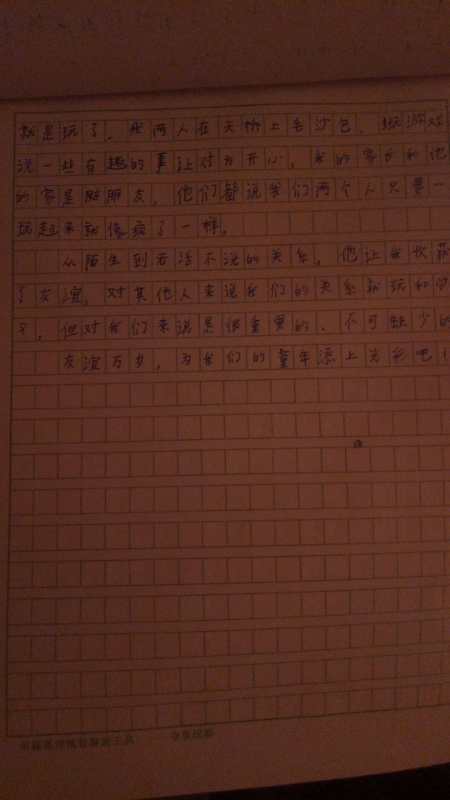 就是玩了。我两人在天桥上丢沙包、玩游戏
说一些有趣的事让对方开心，我的家长和他
的家是好朋友，他们都说我们两个人只要一
玩起来就像疯了一样。
从陌生到无话不说的关系，他让我收获
了友谊，对其他人来说我们的关系
，但对我们来说是很重要的、不可缺少的
友谊万岁，为我们的童年添上光彩吧！